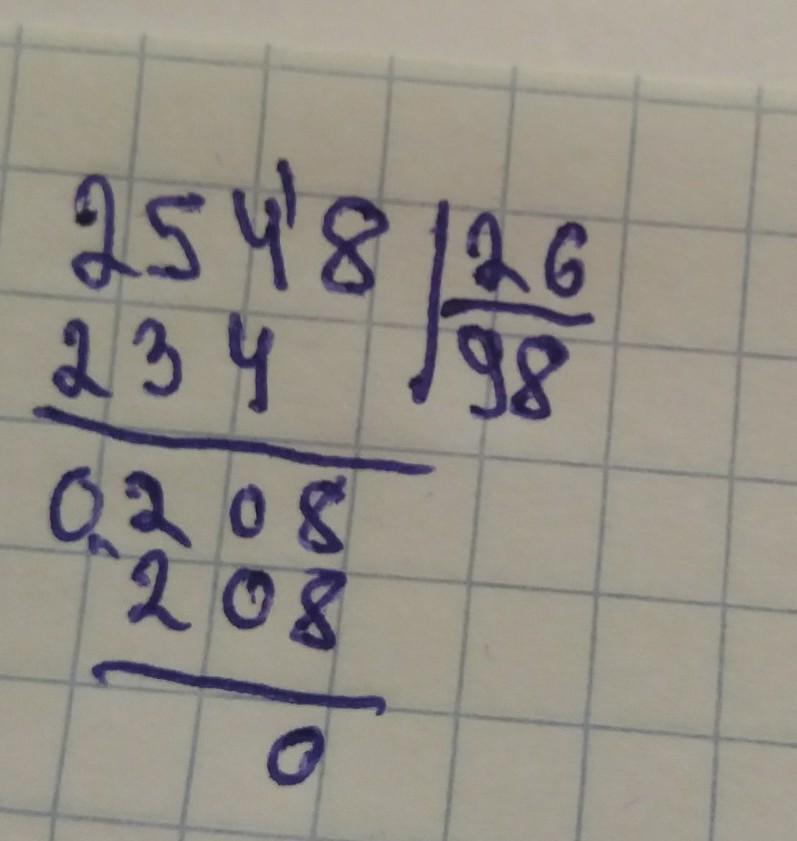 254'8 26
234 98
0208
208
0